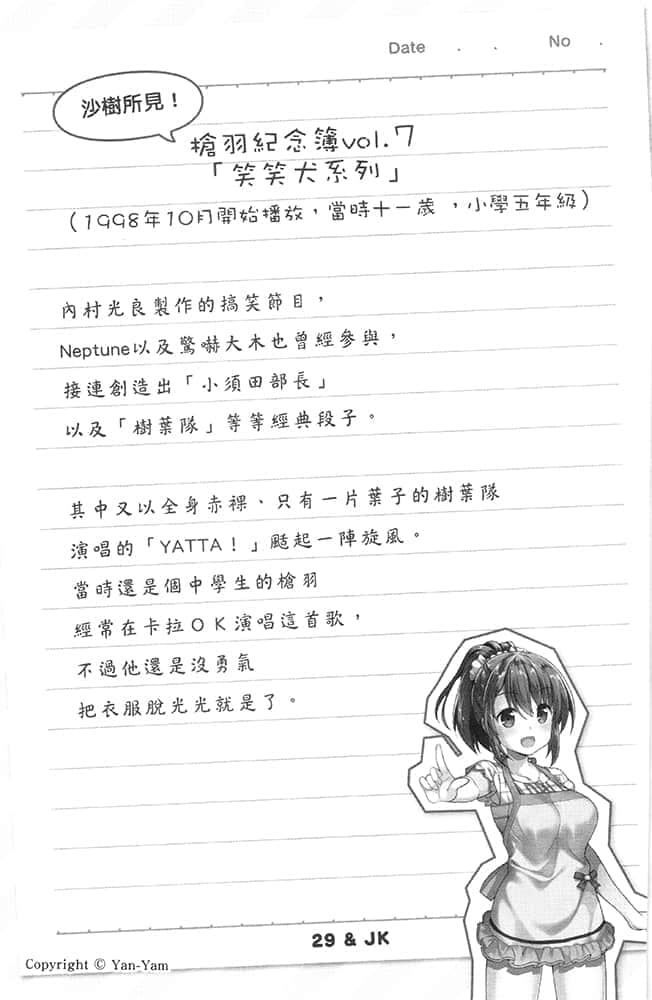 Date . . No .
沙樹所見！
槍羽紀念簿vol.7
「笑笑犬系列」
（1998年10月開始播放，當時十一歲，小學五年級）
內村光良製作的搞笑節目，
Neptune以及驚嚇大木也曾經參與，
接連創造出「小須田部長」
以及「樹葉隊」等等經典段子。
其中又以全身赤裸、只有一片葉子的樹葉隊
演唱的「YATTA！」颳起一陣旋風。
當時還是個中學生的槍羽
經常在卡拉OK演唱這首歌，
不過他還是沒勇氣
把衣服脫光光就是了。
29 & JK
Copyright © Yan-Yam